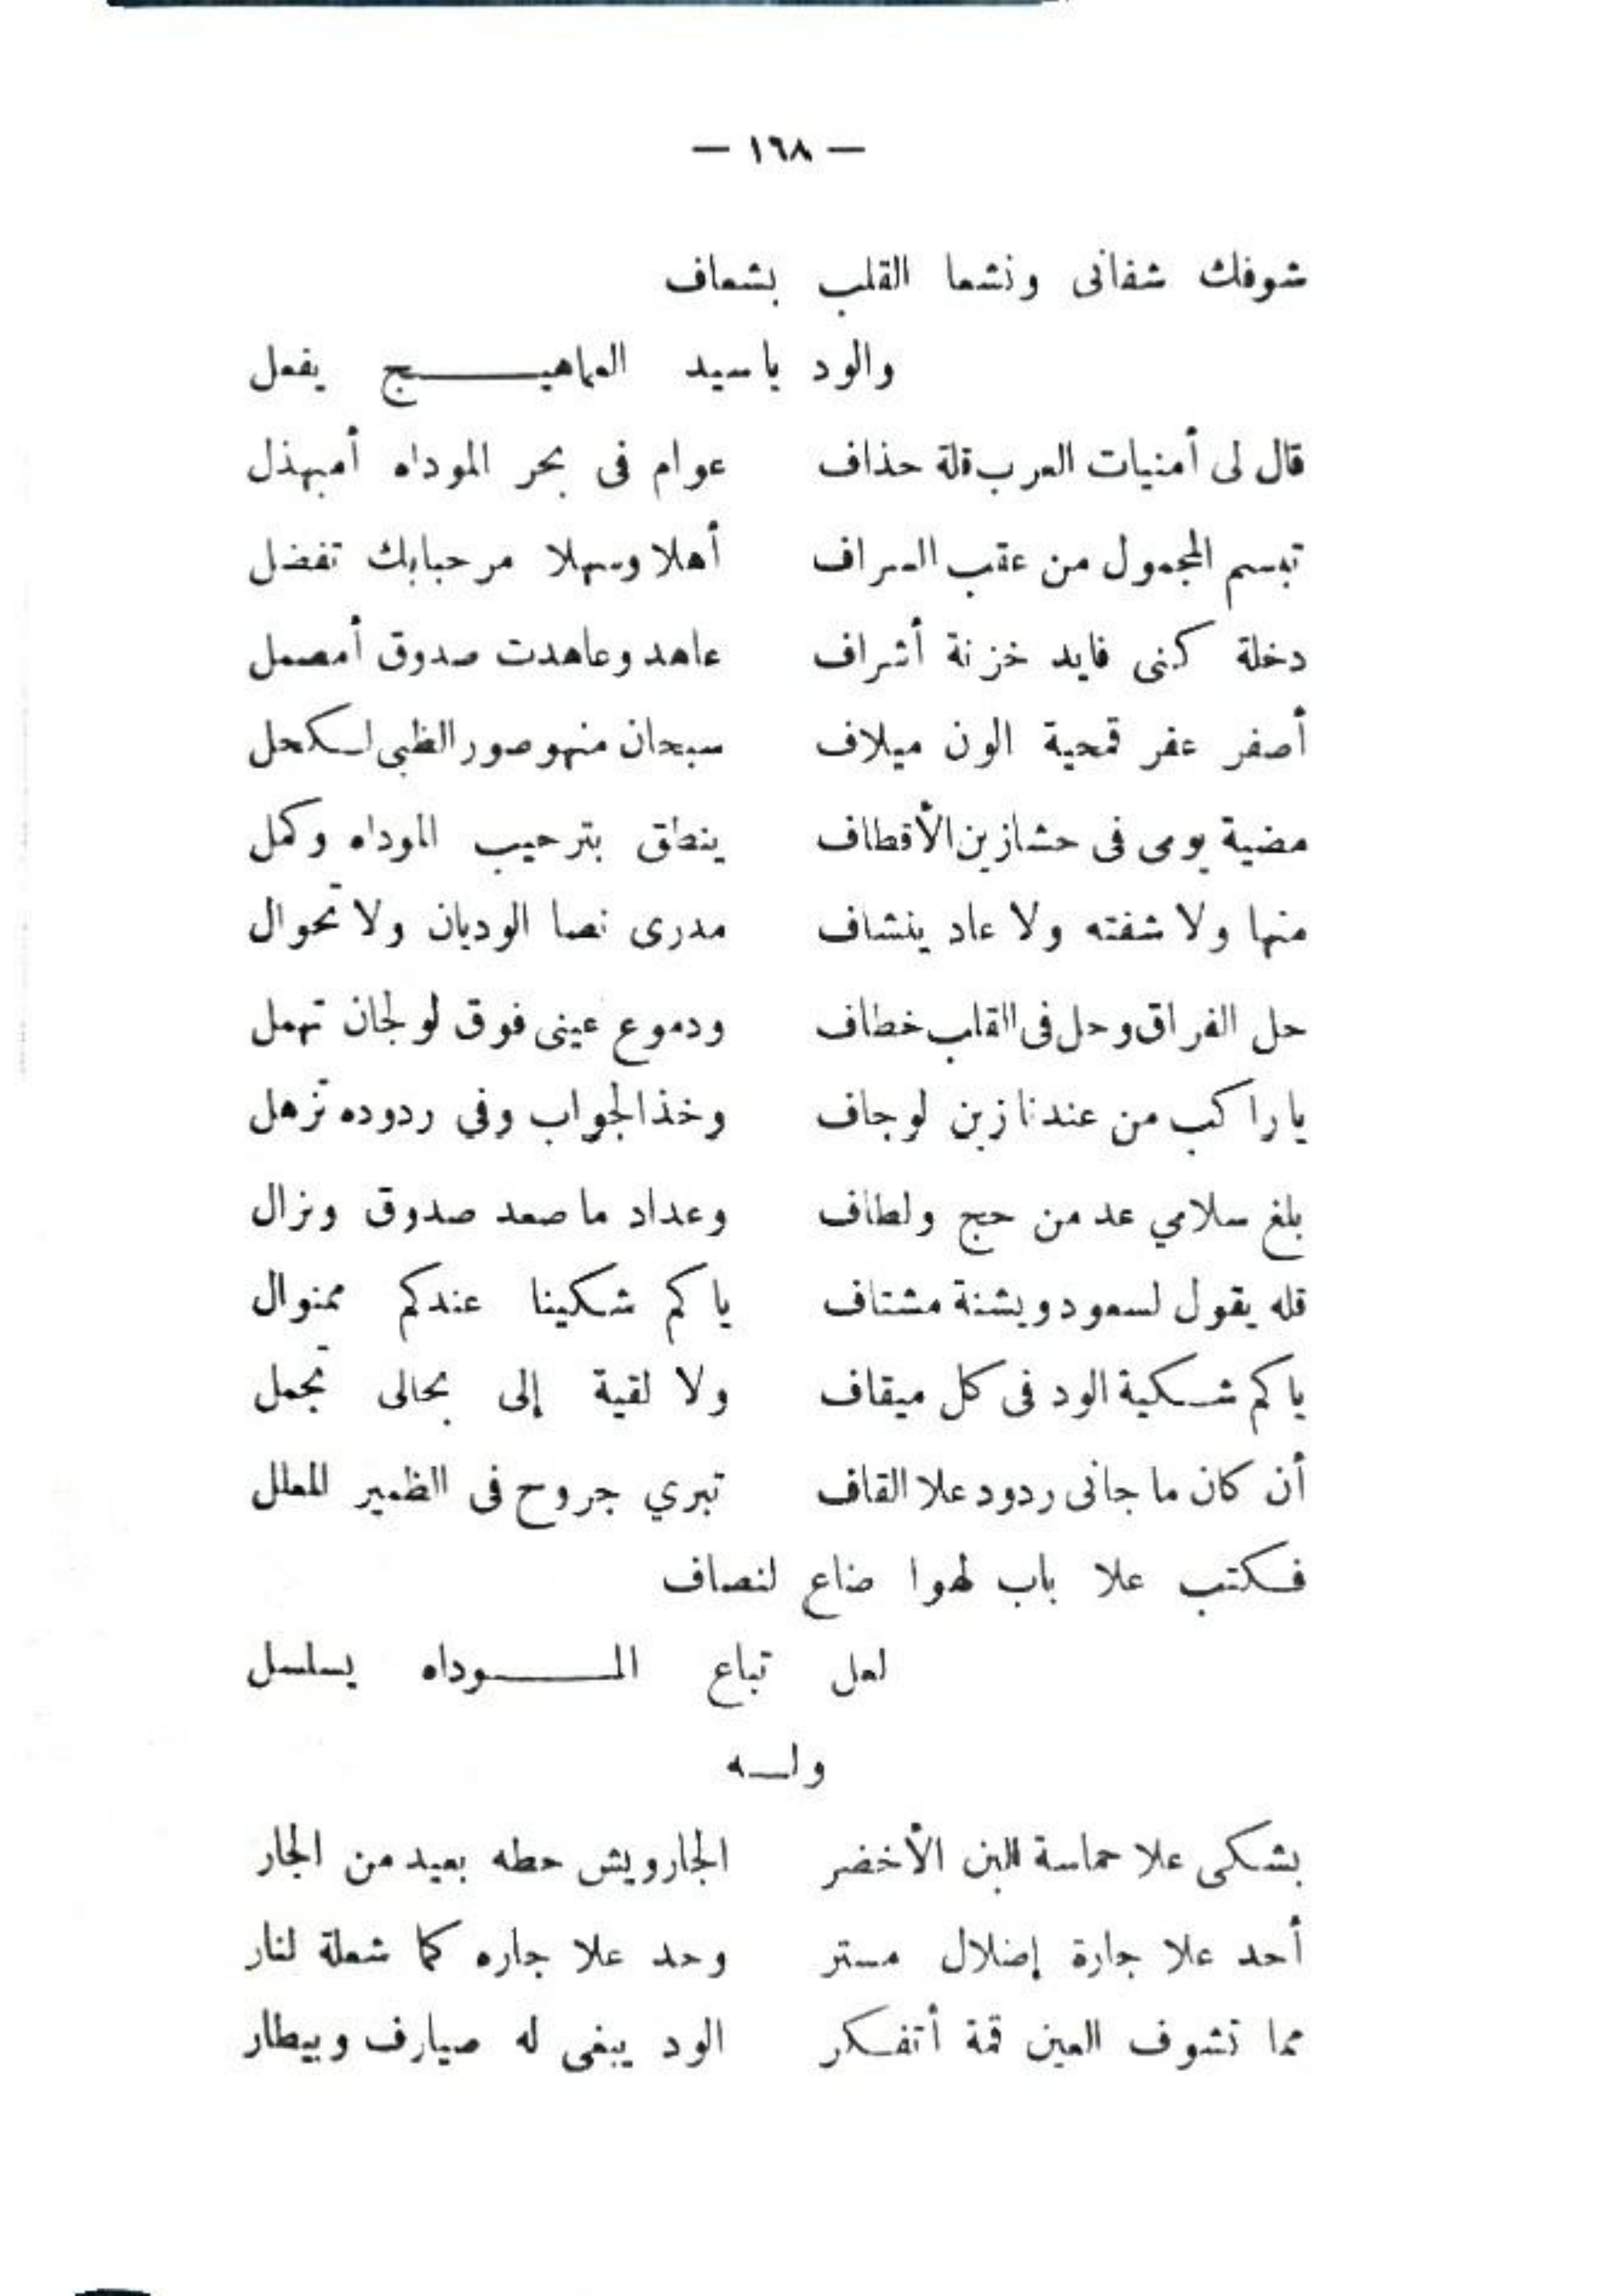 — ١٦٨ —
شوفك شفانى ونشما القلب بشعاف
والود ياسيد العماهيـــــــج يفعل
قال لى أمنيات العرب قلة حذاف عوام فى بحر الموداه أمبهذل
تبسم المجمول من عقب السراف أهلا وسهلا مرحبابك تفضل
دخلة كنى فايد خزنة أشراف عاهد وعاهدت صدوق أمصمل
أصفر عفر قمحية الون ميلاف سبحان منهو صور الظبى لـكحل
مضية يومى فى حشازين الأقطاف ينطق بترحيب الموداه وكمل
منها ولا شفته ولا عاد ينشاف مدرى نصا الوديان ولا تحوال
حل الفراق وحل فى القلب خطاف ودموع عينى فوق لوجان تهمل
ياراكب من عندنا زين لوجاف وخذ الجواب وفي ردوده تزهل
بلغ سلامي عد من حج ولطاف وعداد ما صعد صدوق ونزال
قله يقول لسعود ويشنة مشتاف ياكم شكينا عندكم ممنوال
ياكم شـكية الود فى كل ميقاف ولا لقية إلى بحالى تجمل
أن كان ما جانى ردود علا القاف تبري جروح فى الظمير المعلل
فـكتب علا باب لهوا ضاع لنصاف
لعل تباع المـــــوداه يسلسل
ولـه
بشكى علا حماسة البن الأخضر الجارويش حطه بعيد من الجار
أحد علا جارة إضلال مستر وحد علا جاره كما شعلة لنار
مما تشوف العين قمة أتفـكر الود يبغى له صيارف وبيطار